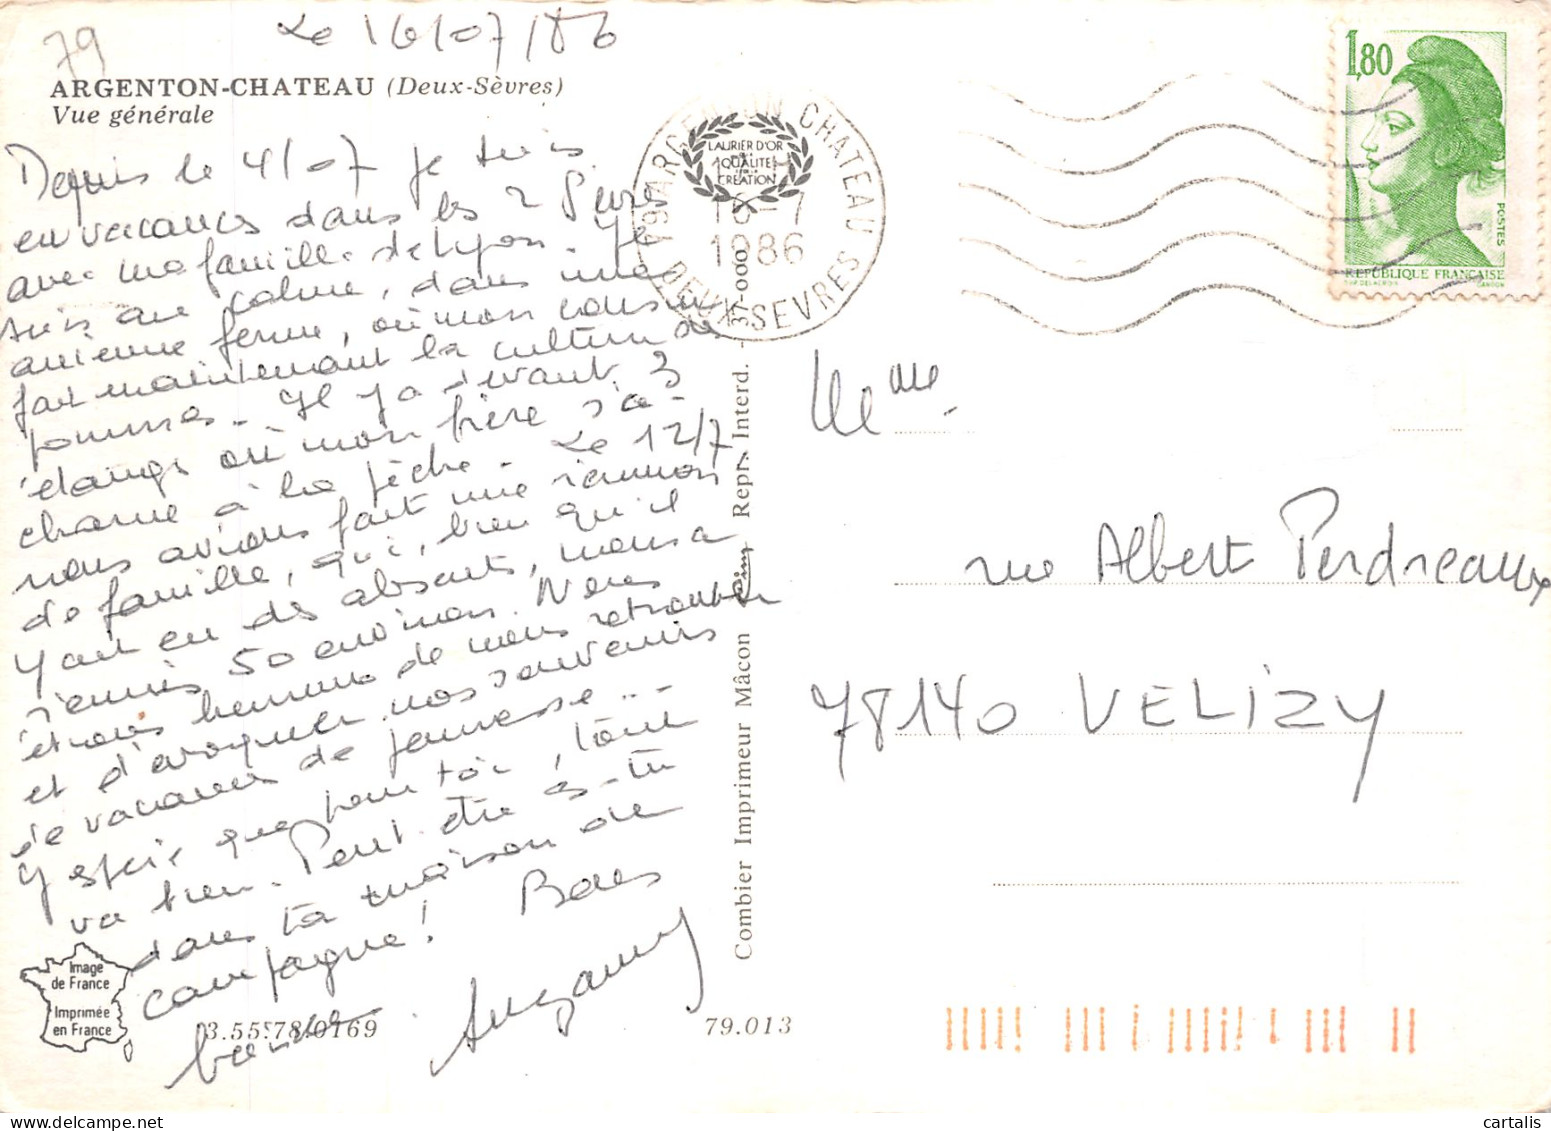 79
Le 16/07/86
ARGENTON-CHATEAU (Deux-Sèvres)
Vue générale
Depuis le 4/07 je suis
en vacances dans les 2 Sèvres
avec ma famille de Lyon. Je
suis au calme, dans une
ancienne ferme, où mon cousin
fait maintenant la culture de
pommes. Il y a devant 3
étangs où mon frère s'a-
charne à la pêche. Le 12/7
nous avions fait une réunion
de famille, qui, bien qu'il
y ait eu des absents, nous a
réunis 50 environ. Nous
étions heureux de nous retrouver
et d'évoquer nos souvenirs
de vacances de jeunesse...
J'espère que pour toi, tout
va bien. Peut être es-tu
dans ta maison de
campagne! Bons
baisers
Suzanne
Image
de France
Imprimée
en France
3.55.78.0169
79.013
Combier Imprimeur Mâcon Repr. Interd. - 37-0000
79 ARGENTON CHATEAU
16-7
1986
DEUX-SEVRES
LAURIER D'OR
QUALITE
CREATION
1,80
POSTES
REPUBLIQUE FRANÇAISE
D'AP DELACROIX
GANDON
Mme
rue Albert Perdreaux
78140 VELIZY
cartalis